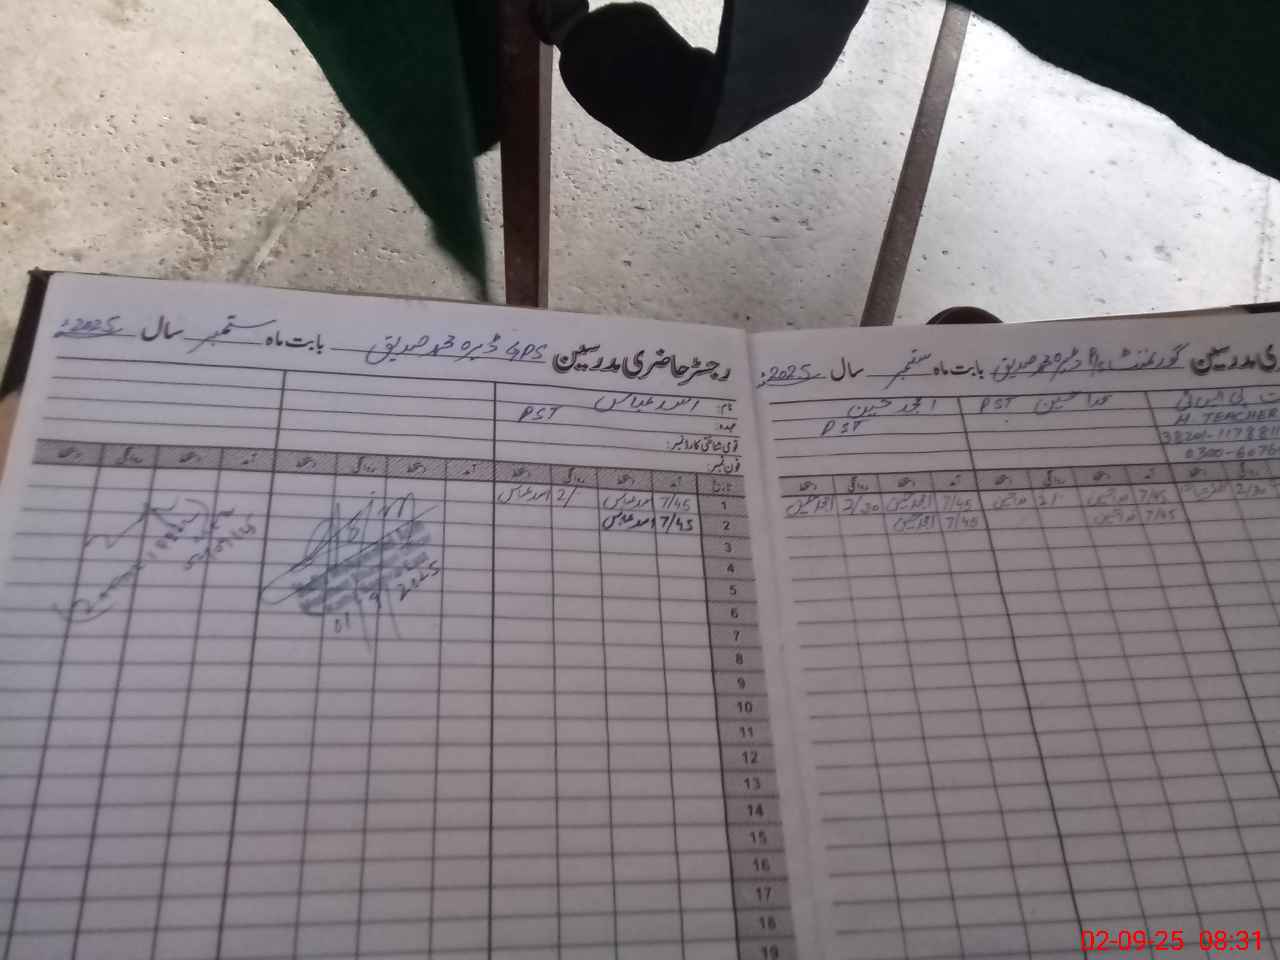 رجسٹر حاضری مدرسین GPS ڈیرہ محمد صدیق بابت ماہ ستمبر سال 2025ء
نام: اسد عباس
عہدہ: PST
قومی شناختی کارڈ نمبر:
فون نمبر:
تاریخ آمد دستخط روانگی دستخط آمد روانگی دستخط آمد دستخط روانگی دستخط
1 7/45 اسد عباس 2/ اسد عباس
2 7/45 اسد عباس
3
4
5
6
7
8
9
10
11
12
13
14
15
16
17
18
19
01 9 2025
ری مدرسین گورنمنٹ P/S ڈیرہ محمد صدیق بابت ماہ ستمبر سال 2025ء
PST امجد حسین
H TEACHER PST
38201-11788
0300-6076
آمد دستخط روانگی دستخط آمد دستخط روانگی دستخط
2/30 7/45 2/ 7/45 امجد حسین 2/30 امجد حسین
7/45 7/45 امجد حسین
02-09-25 08:31